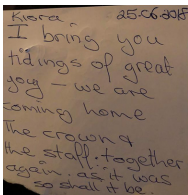 Kiora 25-06-2015
I bring you
tidings of great
joy - we are
coming home
The crown &
the staff: together
again. as it was
so shall it be